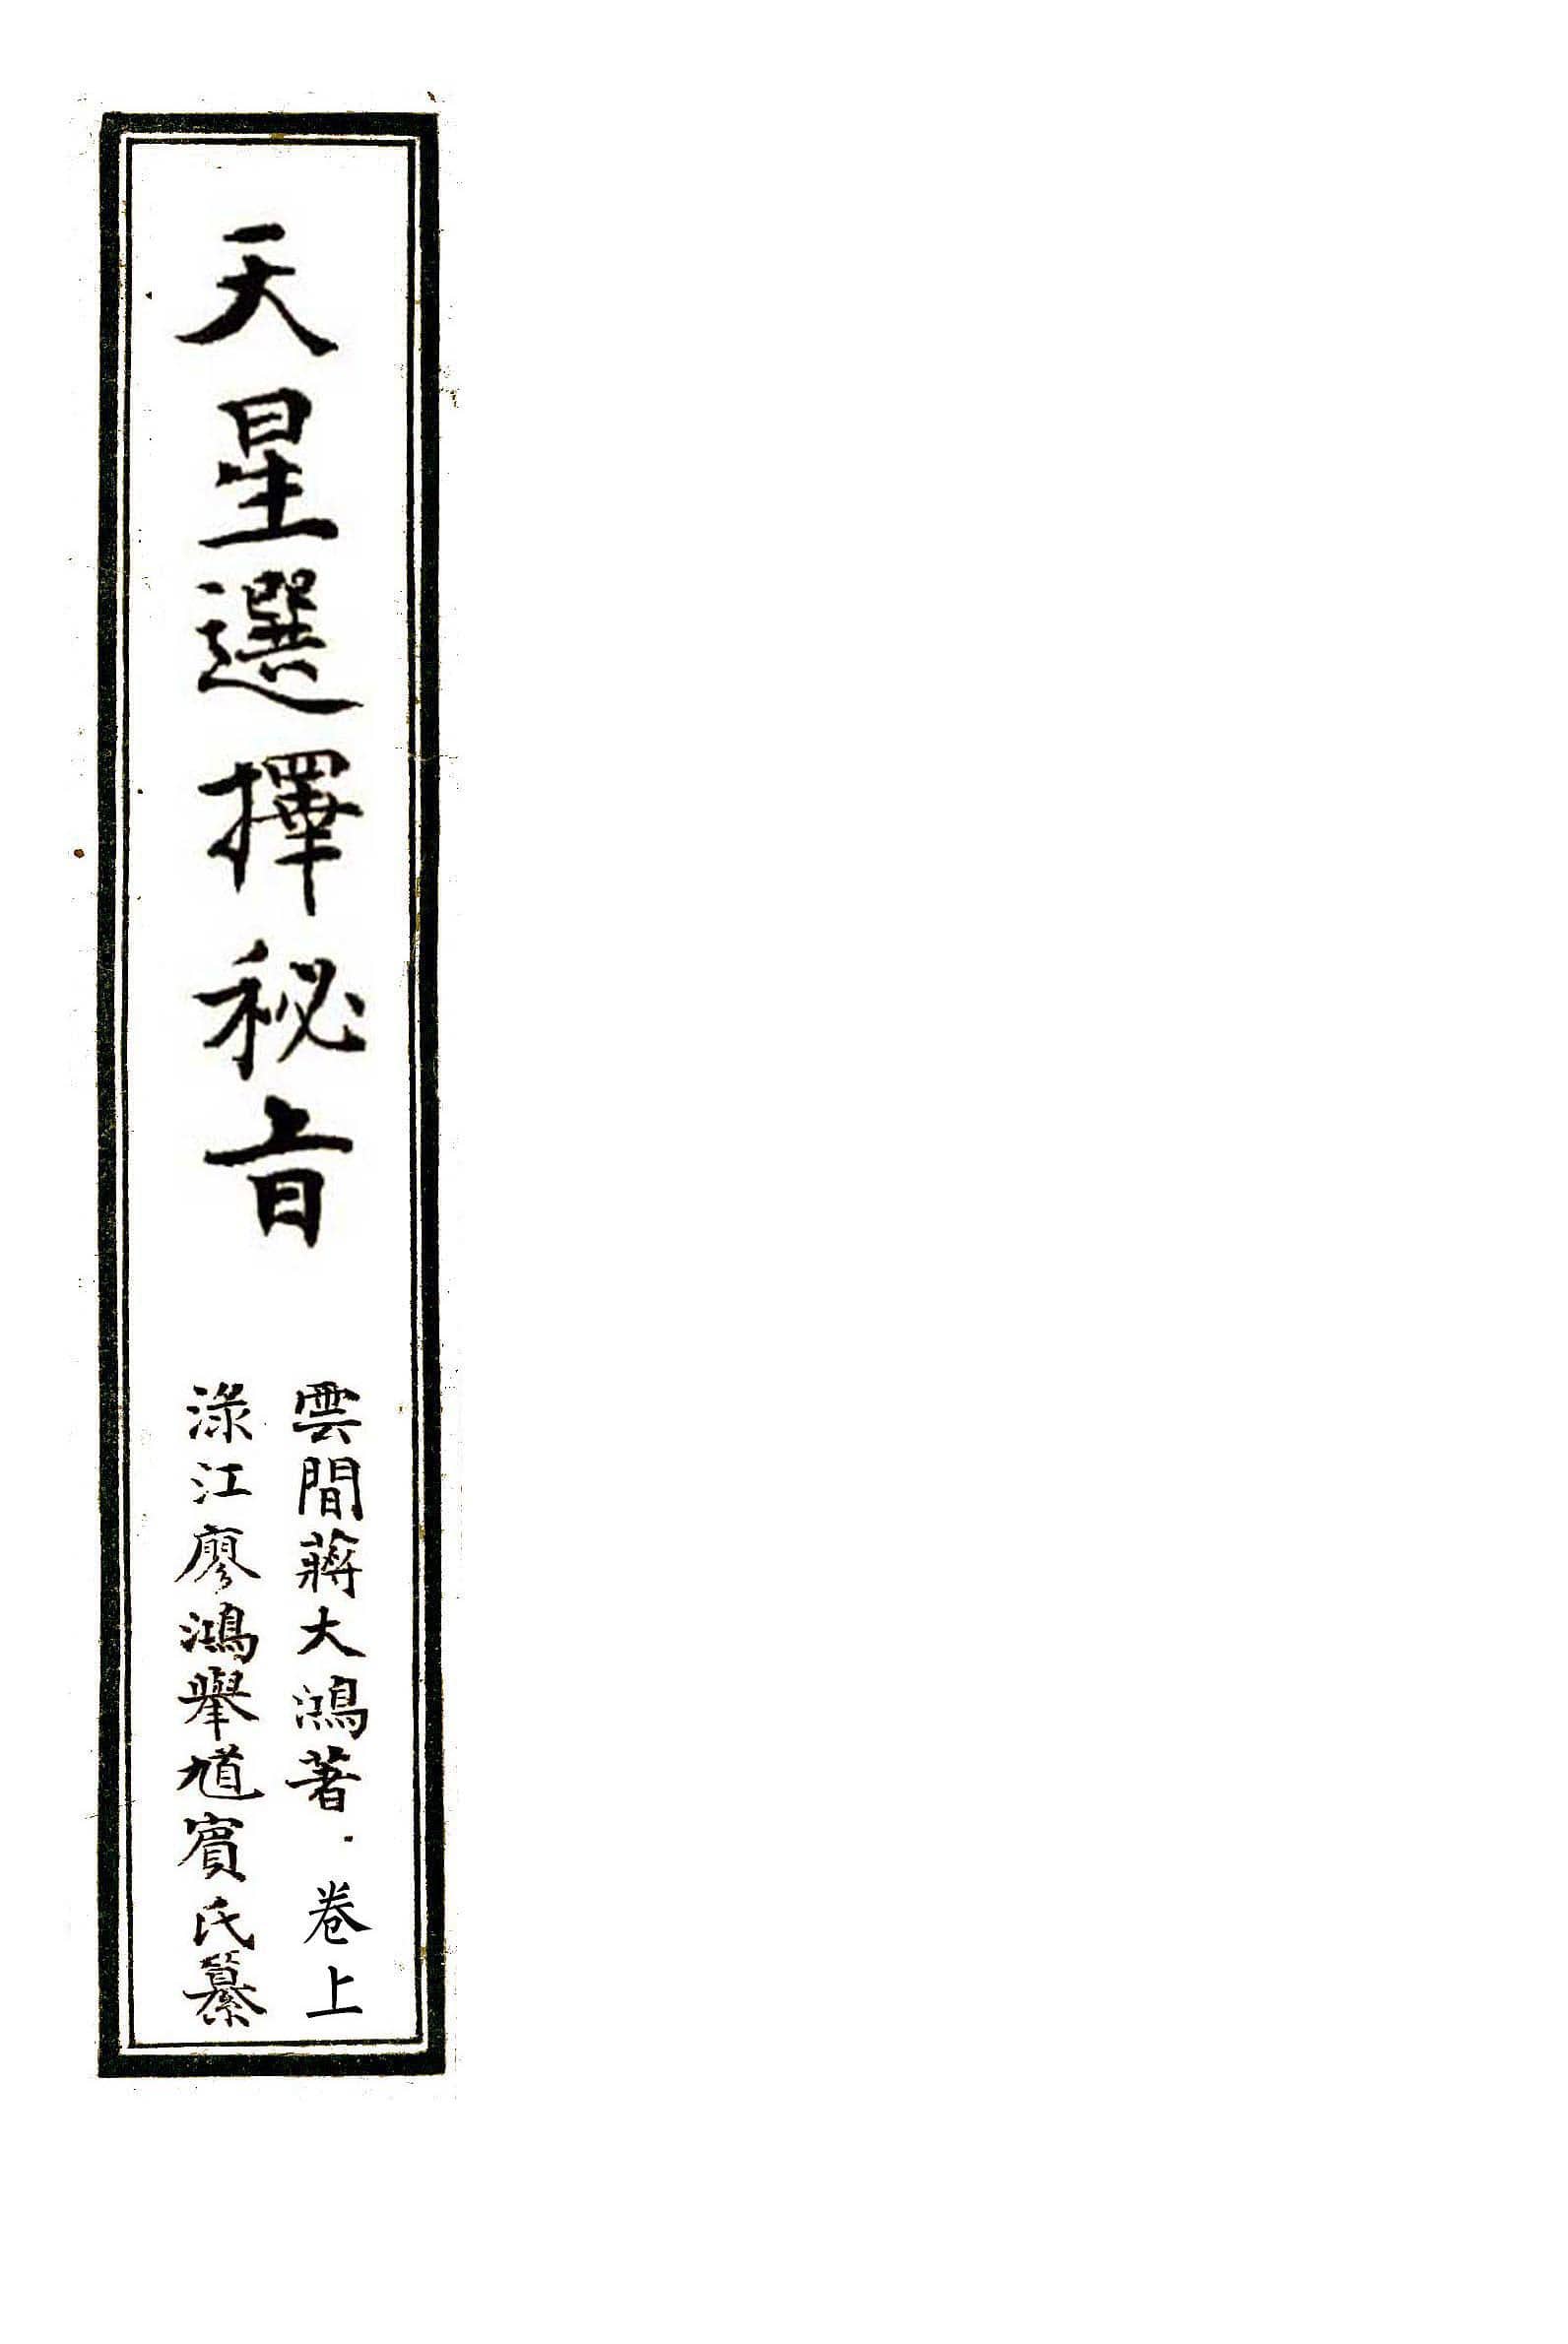 天星選擇秘旨
雲間蔣大鴻著·卷上
淥江廖鴻舉馗賓氏纂